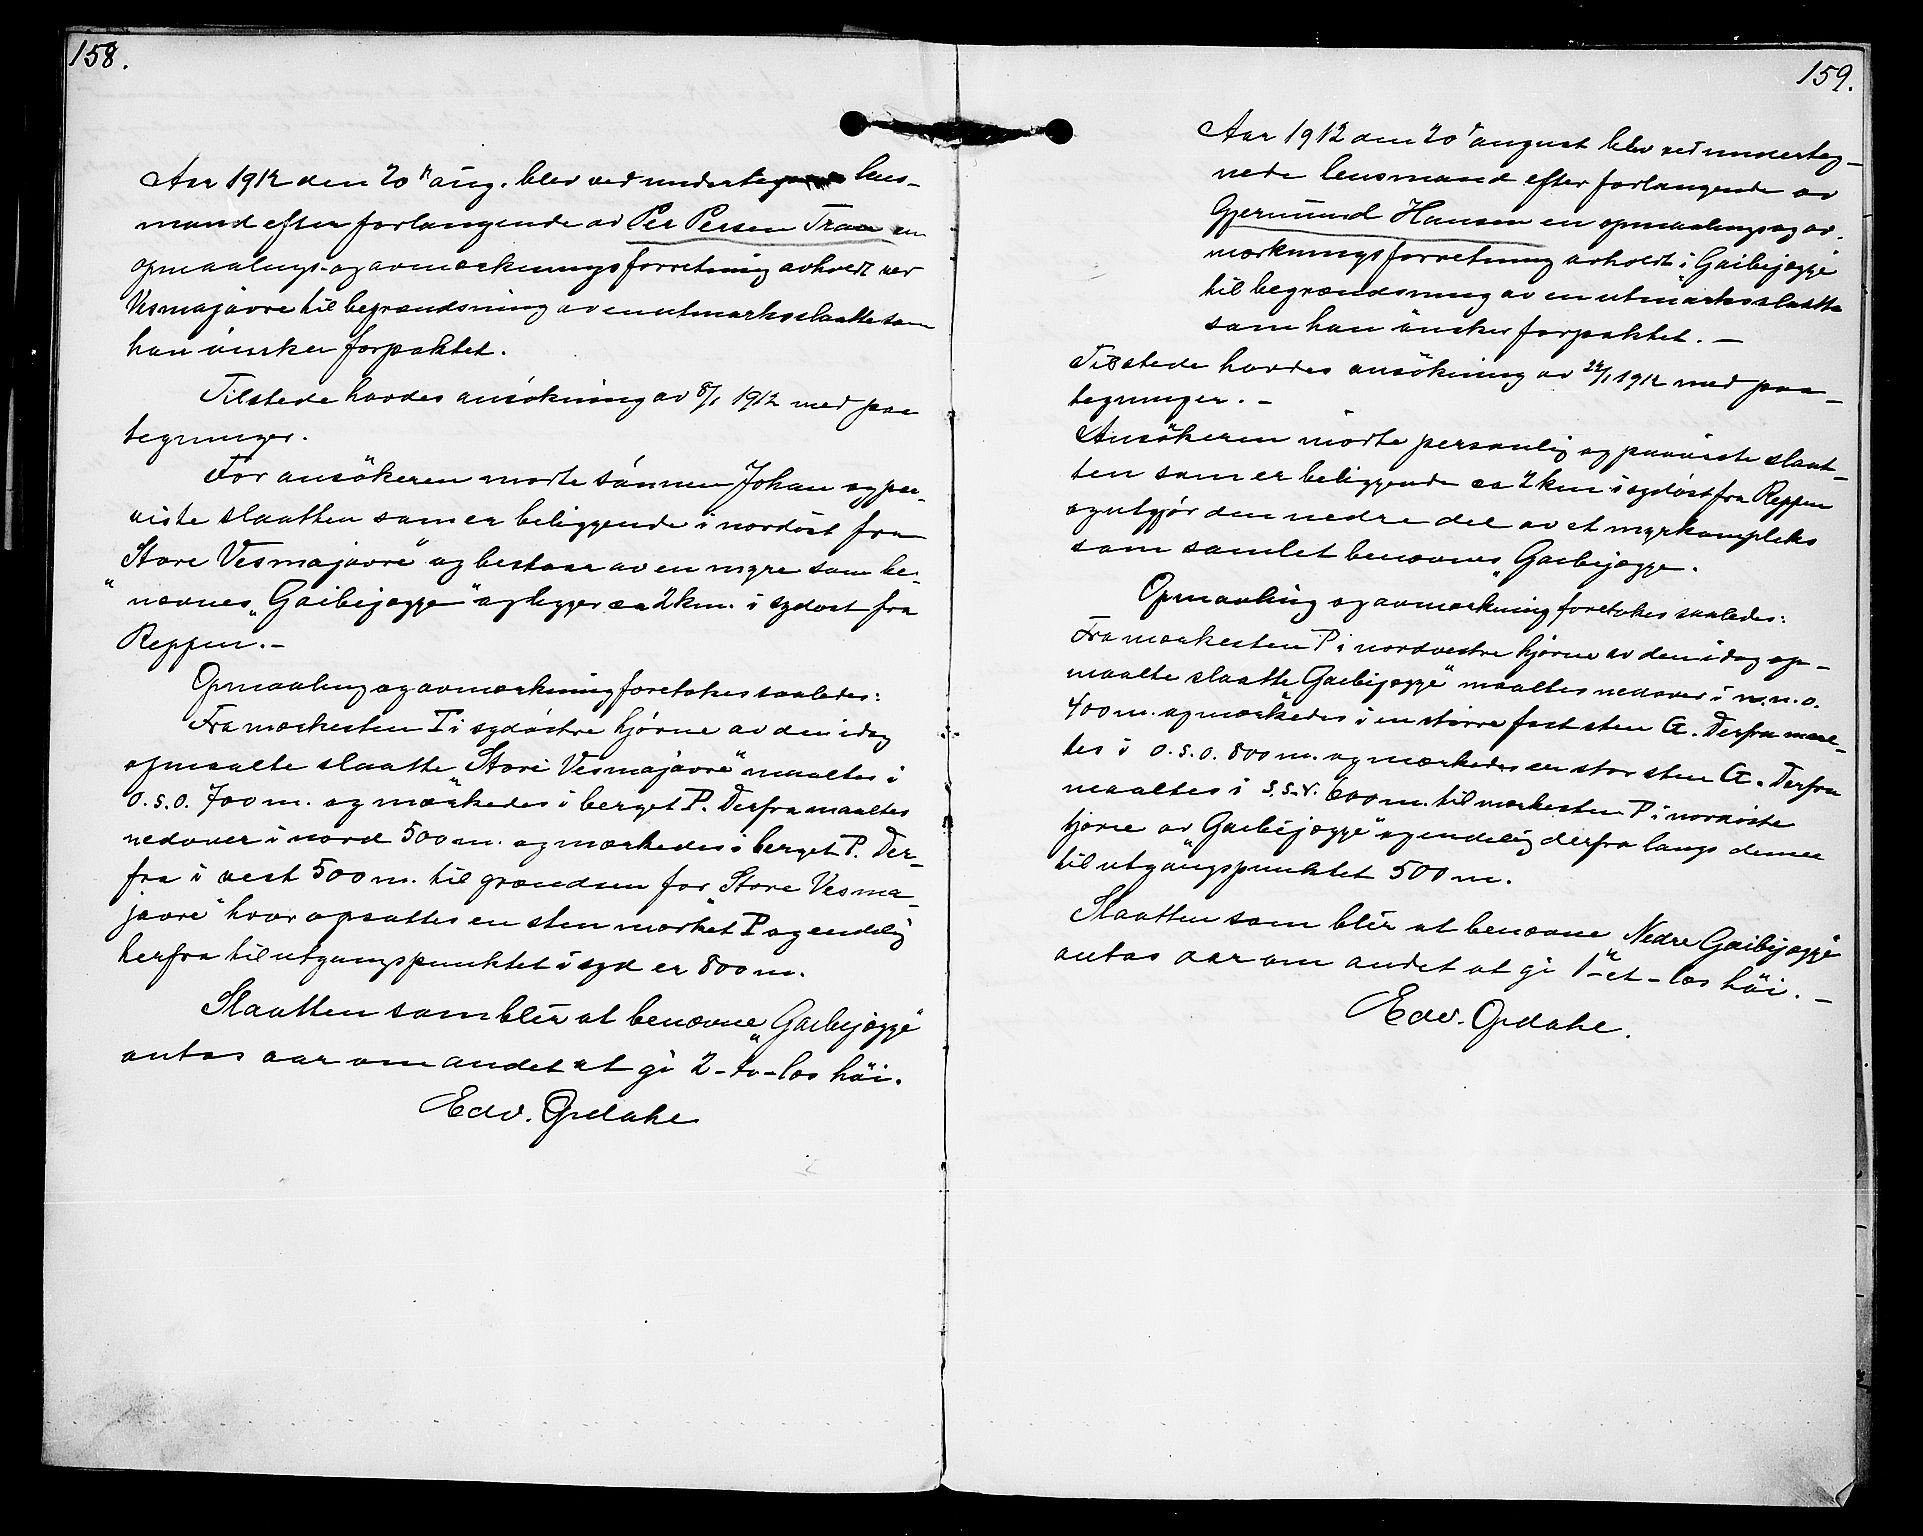 158.
Aar 1912 den 20' aug. blev ved undertegnede lens-
mand efter forlangende av Per Persen Traa en
opmaalings- og avmerkningsforretning avholdt ved
Vesmajavre til begrændsning av en utmarksslaatte som
han ønsker forpaktet.
Tilstede havdes ansökning av 8/1 1912 med paa
tegninger.
For ansökeren mødte sönnen Johan og paa-
viste slaatten som er beliggende i nordöst fra
"Store Vesmajavre" og bestaar av en myre som be-
nævnes "Gaibejægge" og ligger ca 2 km. i sydöst fra
Reppen. -
Opmaaling og avmerkning foretokes saaledes:
Fra merkesten P i sydöstre hjörne av den idag
opmaalte slaatte "Store Vesmajavre" maaltes i
o.s.o. 700 m. og merkedes i berget P. Derfra maaltes
nedover i nord 500 m. og merkedes i berget P. Der-
fra i vest 500 m. til grændsen for "Store Vesma-
javre" hvor opsattes en sten merket P og endelig
herfra til utgangspunktet i syd er 800 m.
Slaatten som blir at benævne "Gaibejægge"
antas aar om andet at gi 2 - to - las höi.
Edv. Opdahl
159.
Aar 1912 den 20' august blev ved underteg-
nede lensmand efter forlangende av
Gjermund Hansen en opmaalings og av-
merkningsforretning avholdt i "Gaibejægge"
til begrændsning av en utmarksslaatte
som han önsker forpaktet. -
Tilstede havdes ansökning av 22/1 1912 med paa-
tegninger. -
Ansökeren mödte personlig og paaviste slaat-
ten som er beliggende ca 2 km i sydöst fra Reppen
og utgjör den nedre del av et myrkompleks
som samlet benævnes "Gaibejægge.
Opmaaling og avmerkning foretokes saaledes:
Fra merkesten P i nordvestre hjörne av den idag op-
maalte slaatte "Gaibejægge" maaltes nedover i n.n.o.
400 m. og merkedes i en större fast sten G. Derfra maal-
tes i o.s.o. 800 m. og merkedes en stor sten G. Derfra
maaltes i s.s.v. 600 m. til merkesten P i nordöstre
hjörne av "Gaibejægge" og endelig derfra langs denne
til utgangspunktet 500 m.
Slaatten som blir at benævne "Nedre Gaibejægge"
antas aar om andet at gi 1 - et - las höi. -
Edv. Opdahl.